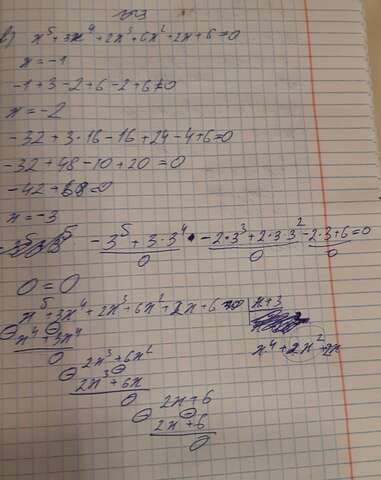 в) x⁵+3x⁴+2x³+6x²+2x+6=0
x=-1
-1+3-2+6-2+6≠0
x=-2
-32+3·16-16+24-4+6=0
-32+48-10+20=0
x=-3
-3⁵+3·3⁴-2·3³+2·3·3²-2·3+6=0
0 0 0
0=0
x⁵+3x⁴+2x³+6x²+2x+6 x+3
x⁴+3x⁴ x⁴+2x²+2x
0 2x³+6x²
2x³+6x
0 2x+6
2x+6
0